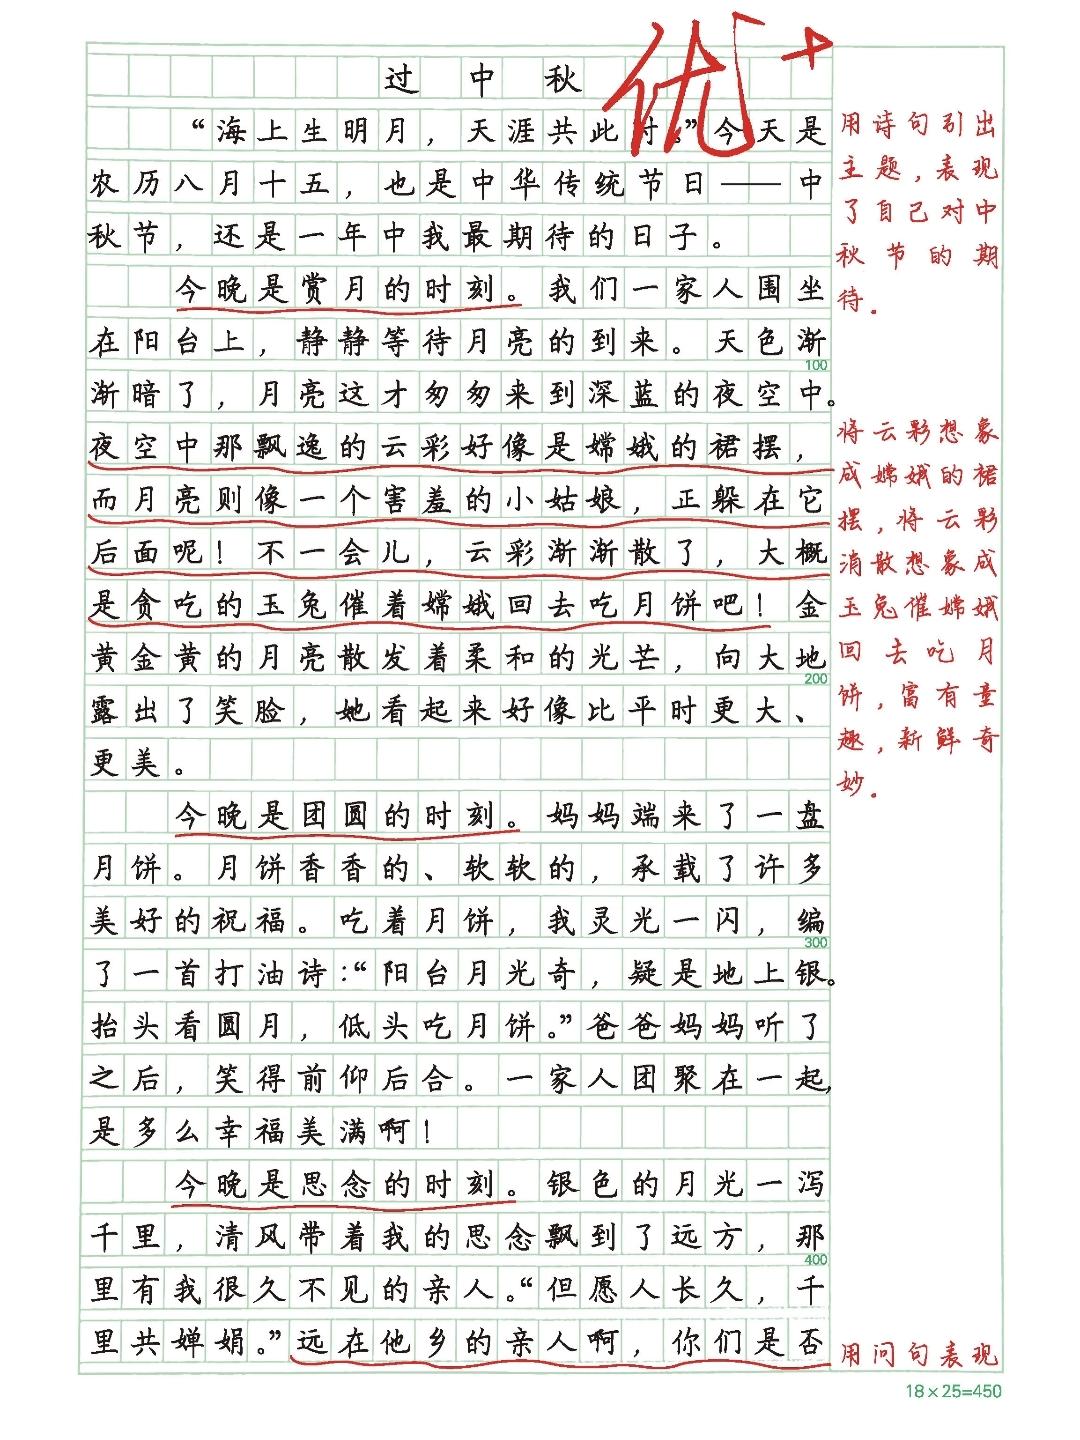 过中秋
优+
“海上生明月，天涯共此时。”今天是
农历八月十五，也是中华传统节日——中
秋节，还是一年中我最期待的日子。
今晚是赏月的时刻。我们一家人围坐
在阳台上，静静等待月亮的到来。天色渐
渐暗了，月亮这才匆匆来到深蓝的夜空中。
夜空中那飘逸的云彩好像是嫦娥的裙摆，
而月亮则像一个害羞的小姑娘，正躲在它
后面呢！不一会儿，云彩渐渐散了，大概
是贪吃的玉兔催着嫦娥回去吃月饼吧！金
黄金黄的月亮散发着柔和的光芒，向大地
露出了笑脸，她看起来好像比平时更大、
更美。
今晚是团圆的时刻。妈妈端来了一盘
月饼。月饼香香的、软软的，承载了许多
美好的祝福。吃着月饼，我灵光一闪，编
了一首打油诗：“阳台月光奇，疑是地上银。
抬头看圆月，低头吃月饼。”爸爸妈妈听了
之后，笑得前仰后合。一家人团聚在一起，
是多么幸福美满啊！
今晚是思念的时刻。银色的月光一泻
千里，清风带着我的思念飘到了远方，那
里有我很久不见的亲人。“但愿人长久，千
里共婵娟。”远在他乡的亲人啊，你们是否
100
200
300
400
用诗句引出
主题，表现
了自己对中
秋节的期
待.
将云彩想象
成嫦娥的裙
摆，将云彩
消散想象成
玉兔催嫦娥
回去吃月
饼，富有童
趣，新鲜奇
妙.
用问句表现
18×25=450